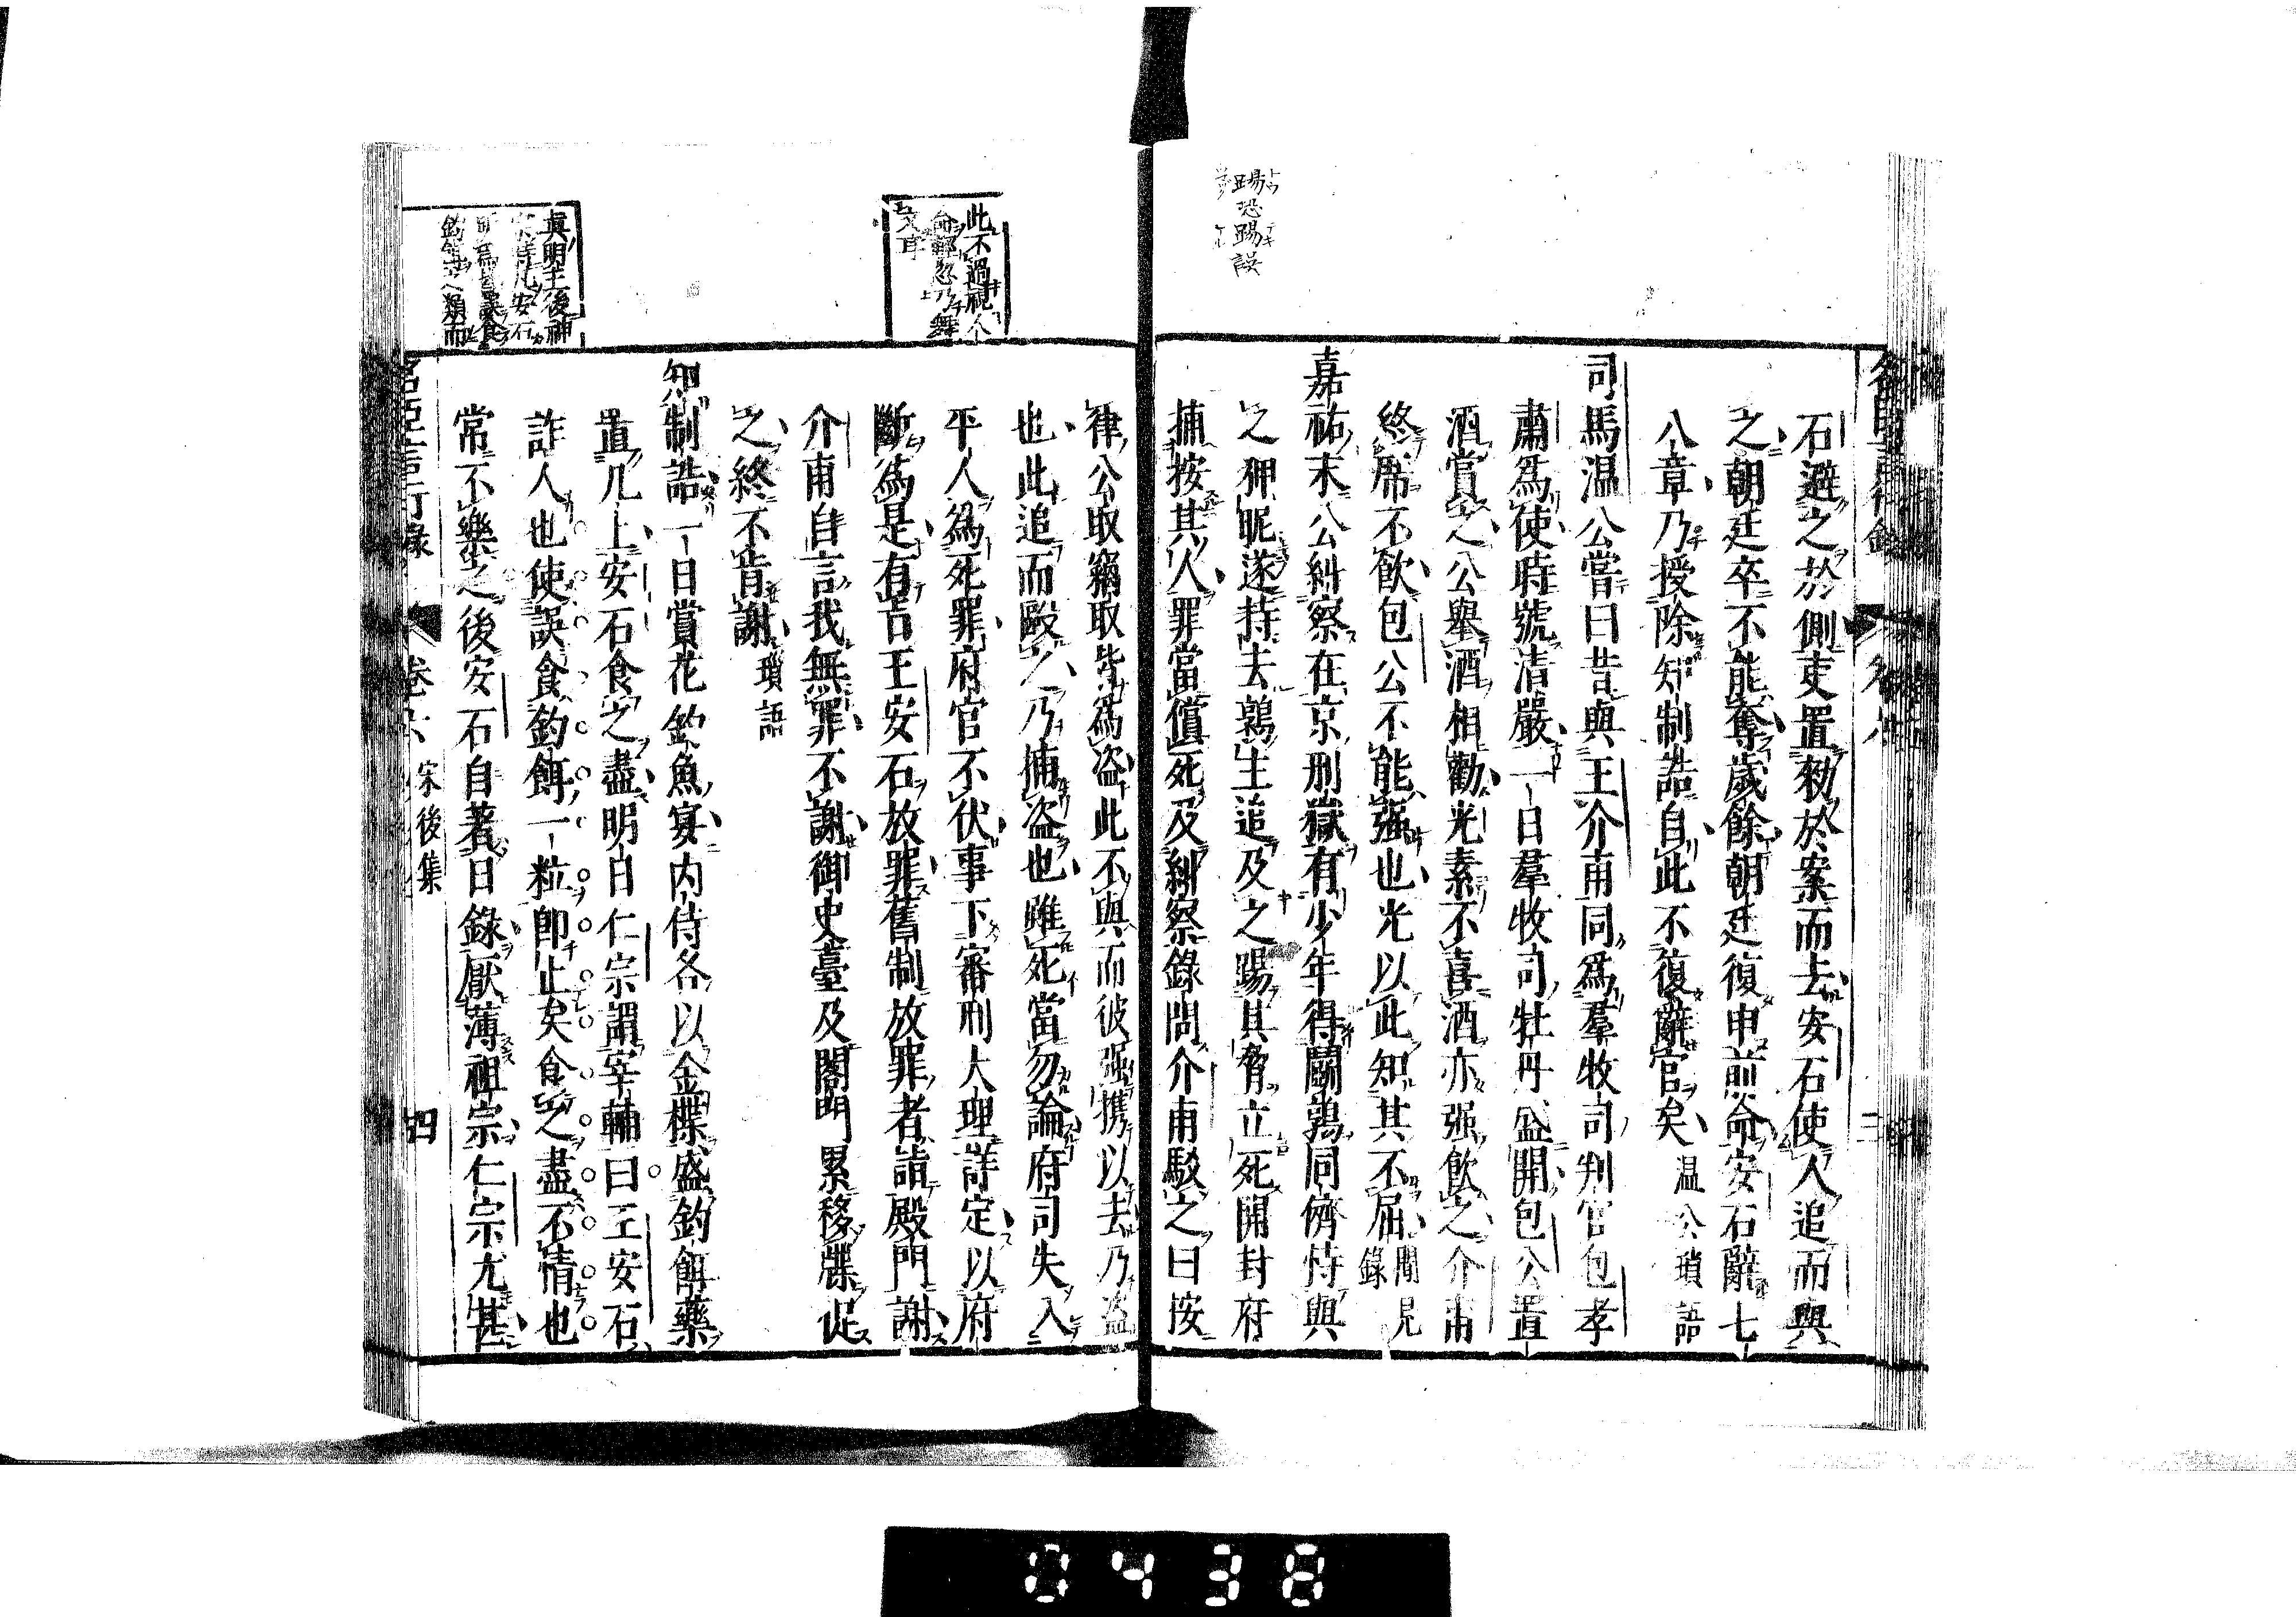 踢恐踼誤
石避之於側吏置勑於案而去安石使人追而與
之朝廷卒不能奪歲餘朝廷復申前命安石辭七
八章乃授除知制誥自此不復辭官矣温公瑣語
司馬温公嘗曰昔與王介甫同爲羣牧司判官包孝
肅爲使時號清嚴一日羣牧司牡丹盛開包公置
酒賞之公舉酒相勸光素不喜酒亦强飲之介甫
終席不飲包公不能强也光以此知其不屈聞見錄
嘉祐末公糾察在京刑獄有少年得鬭鶉同儕恃與
之狎昵遂持去鶉主追及之踢其脅立死開封府
捕按其人罪當償死及糾察錄問介甫駁之曰按
此不過視人
律公取竊取皆爲盗此不與而彼强携以去乃盗
也此追而毆之乃捕盗也雖死當勿論府司失入
平人爲死罪府官不伏事下審刑大理詳定以府
斷爲是有旨王安石放罪舊制放罪者詣殿門謝
介甫自言我無罪不謝御史臺及閤門累移牒促
之終不肯謝瑣語
眞明主後神
安石
誤食
類而
知制誥一日賞花釣魚宴内侍各以金楪盛釣餌藥
置几上安石食之盡明白仁宗謂宰輔曰王安石
詐人也使誤食釣餌一粒即止矣食之盡不情也
常不樂之後安石自著日錄厭薄祖宗仁宗尤甚
名臣言行錄
卷六
宋後集
四
0438